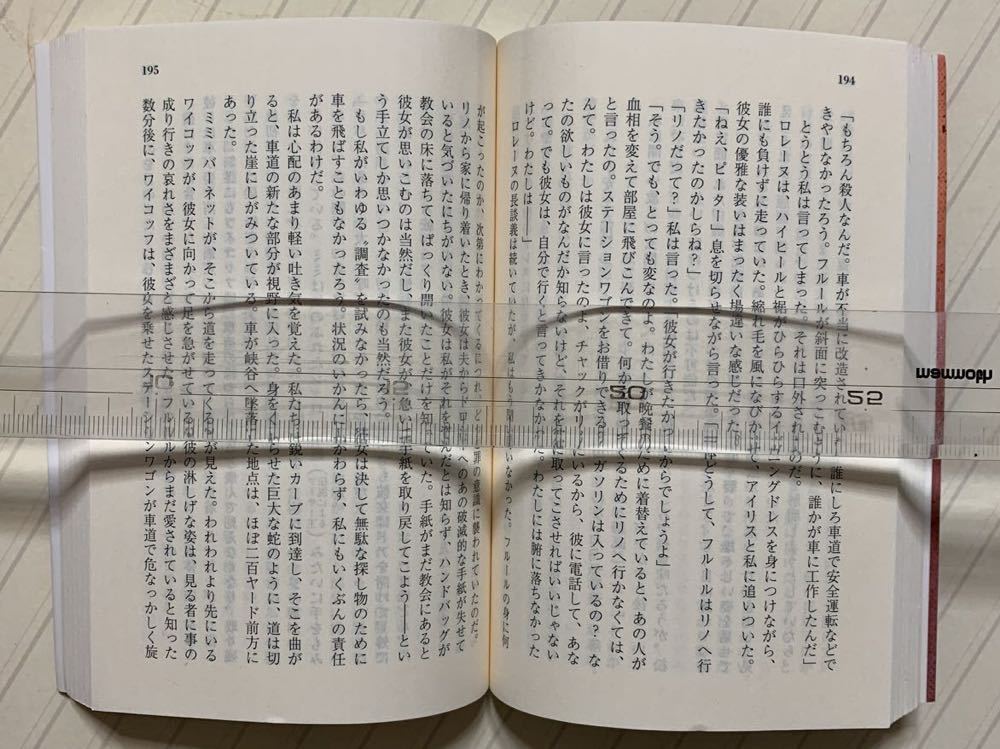 194
「もちろん殺人なんだ。車が不当に改造されていた。誰にしろ車道で安全運転などで
きやしなかったろう。フルールが斜面に突っこむように、誰かが車に工作したんだ」
とうとう私は言ってしまった。それは口外されたのだ。
ロレーヌは、ハイヒールと裾がひらひらするイヴニングドレスを身につけながら、
誰にも負けずに走っていた。縮れ毛を風になびかせ、アイリスと私に追いついた。
彼女の優雅な装いはまったく場違いな感じだった。
「ねえ、ピーター」息を切らせながら言った。「一体どうして、フルールはリノへ行
きたかったのかしらね?」
「リノだって?」私は言った。「彼女が行きたがっ からでしょうよ」
「そう。でも、とっても変なのよ。わたしが晩餐のために着替えていると、あの人が
血相を変えて部屋に飛びこんできて。何か 取ってくるためにリノへ行かなくては、
と言ったの。ステーションワゴンをお借りできる? ガソリンは入っているの? な
んて。わたしは彼女に言ったのよ、チャックがリノにいるから、彼に電話して、あな
たの欲しいものがなんだか知らないけど、それを に取ってこさせればいいじゃない
って。でも彼女は、自分で行くと言ってきかなかった。わたしには腑に落ちなかった
けど。わたしは――」
ロレーヌの長談義は続いていたが、私はもう聞いていなかった。フルールの身に何
195
が起こったのか、次第にわかってくるにつれ、 罪の意識に襲われていたのだ。
リノから家に帰り着いたとき、彼女は夫からドロシーへのあの破滅的な手紙が失せて
いると気づいたにちがいない。彼女は私がそれを んだとは知らず、ハンドバッグが
教会の床に落ちて ぱっくり開いたことだけを知 ていた。手紙がまだ教会にあると
彼女が思いこむのは当然だし、また彼女が 急いで手紙を取り戻してこよう――とい
う手立てしか思いつかなかったのも当然だろう。
もし私がいわゆる〝調査〟を試みなかったら、彼女は決して無駄な探し物のために
車を飛ばすこともなかったろう。状況のいかんにかかわらず、私にもいくぶんの責任
があるわけだ。
私は心配のあまり軽い吐き気を覚えた。私たちは鋭いカーブに到達し、そこを曲が
ると 車道の新たな部分が視野に入った。身をくねらせた巨大な蛇のように、道は切
り立った崖にしがみついている。車が峡谷へ墜落した地点は、ほぼ二百ヤード前方に
あった。
ミミ・バーネットが、そこから道を走ってくるのが見えた。われわれより先にいる
ワイコッフが、彼女に向かって足を急がせている。彼の淋しげな姿は、見る者に事の
成り行きの哀れさをまざまざと感じさせた。フルールからまだ愛されていると知った
数分後に ワイコッフは、彼女を乗せたステーションワゴンが車道で危なっかしく旋
mammoth
50
52